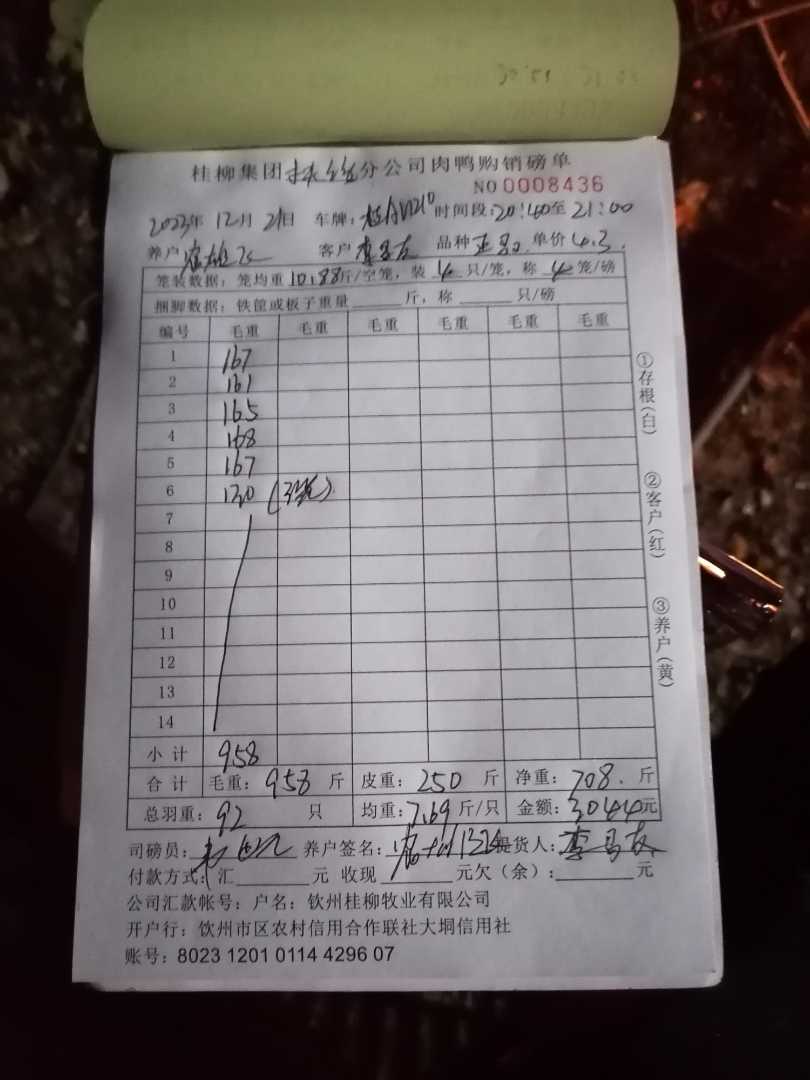 桂柳集团分公司肉鸭购销磅单
NO 0008436
2023年 12月 21日 车牌: 时间段:20:40至 21:00
养户 客户 李马友 品种 单价 4.3
笼装数据:笼均重 10.88斤/空笼,装 4 只/笼,称 4 笼/磅
捆脚数据:铁筐或板子重量 斤,称 只/磅
编号 毛重 毛重 毛重 毛重 毛重 毛重
1 167
2 161
3 165
4 168
5 167
6 130
7
8
9
10
11
12
13
14
小计 958
合计 毛重: 958 斤 皮重: 250 斤 净重: 708. 斤
总羽重: 92 只 均重: 7.69 斤/只 金额: 3044元
司磅员: 养户签名: 提货人: 李马友
付款方式:汇 元 收现 元欠(余): 元
公司汇款帐号:户名:钦州桂柳牧业有限公司
开户行:钦州市区农村信用合作联社大垌信用社
账号:8023 1201 0114 4296 07
①存根(白)
②客户(红)
③养户(黄)